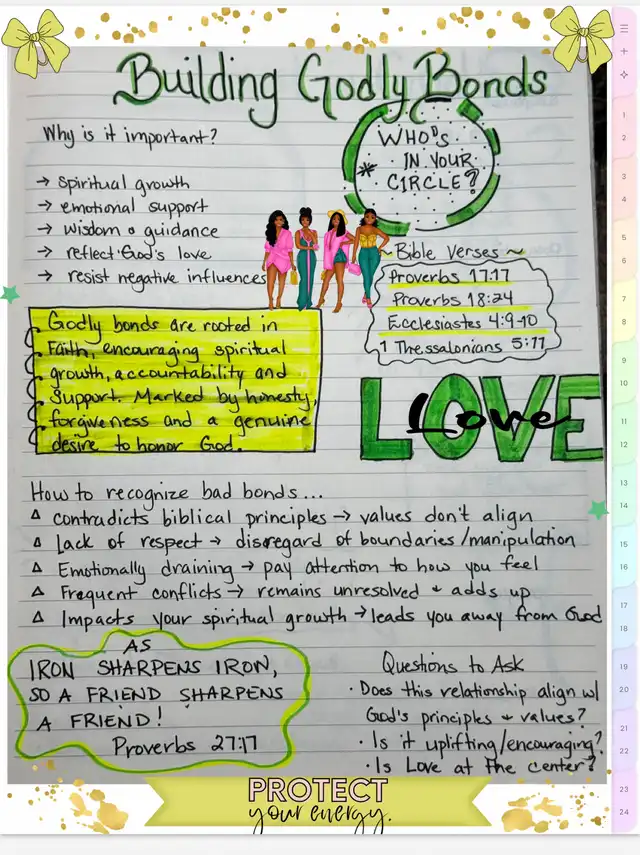 Building Godly Bonds
Why is it important?
→ spiritual growth
→ emotional support
→ wisdom & guidance
→ reflect God's love
→ resist negative influences
* WHO'S
IN YOUR
CIRCLE?
~ Bible Verses ~
Proverbs 17:17
Proverbs 18:24
Ecclesiastes 4:9-10
1 Thessalonians 5:11
Godly bonds are rooted in
Faith, encouraging spiritual
growth, accountability and
Support. Marked by honesty,
forgiveness and a genuine
desire to honor God.
LOVE
Love
How to recognize bad bonds...
∆ contradicts biblical principles → values don't align
∆ Lack of respect → disregard of boundaries/manipulation
∆ Emotionally draining → pay attention to how you feel
∆ Frequent conflicts → remains unresolved & adds up
∆ Impacts your spiritual growth → leads you away from God
AS
IRON SHARPENS IRON,
SO A FRIEND SHARPENS
A FRIEND!
Proverbs 27:17
Questions to Ask
· Does this relationship align w/
God's principles & values?
· Is it uplifting/encouraging?
· Is Love at the center?
PROTECT
your energy.
1
2
3
4
5
6
7
8
9
10
11
12
13
14
15
16
17
18
19
20
21
22
23
24